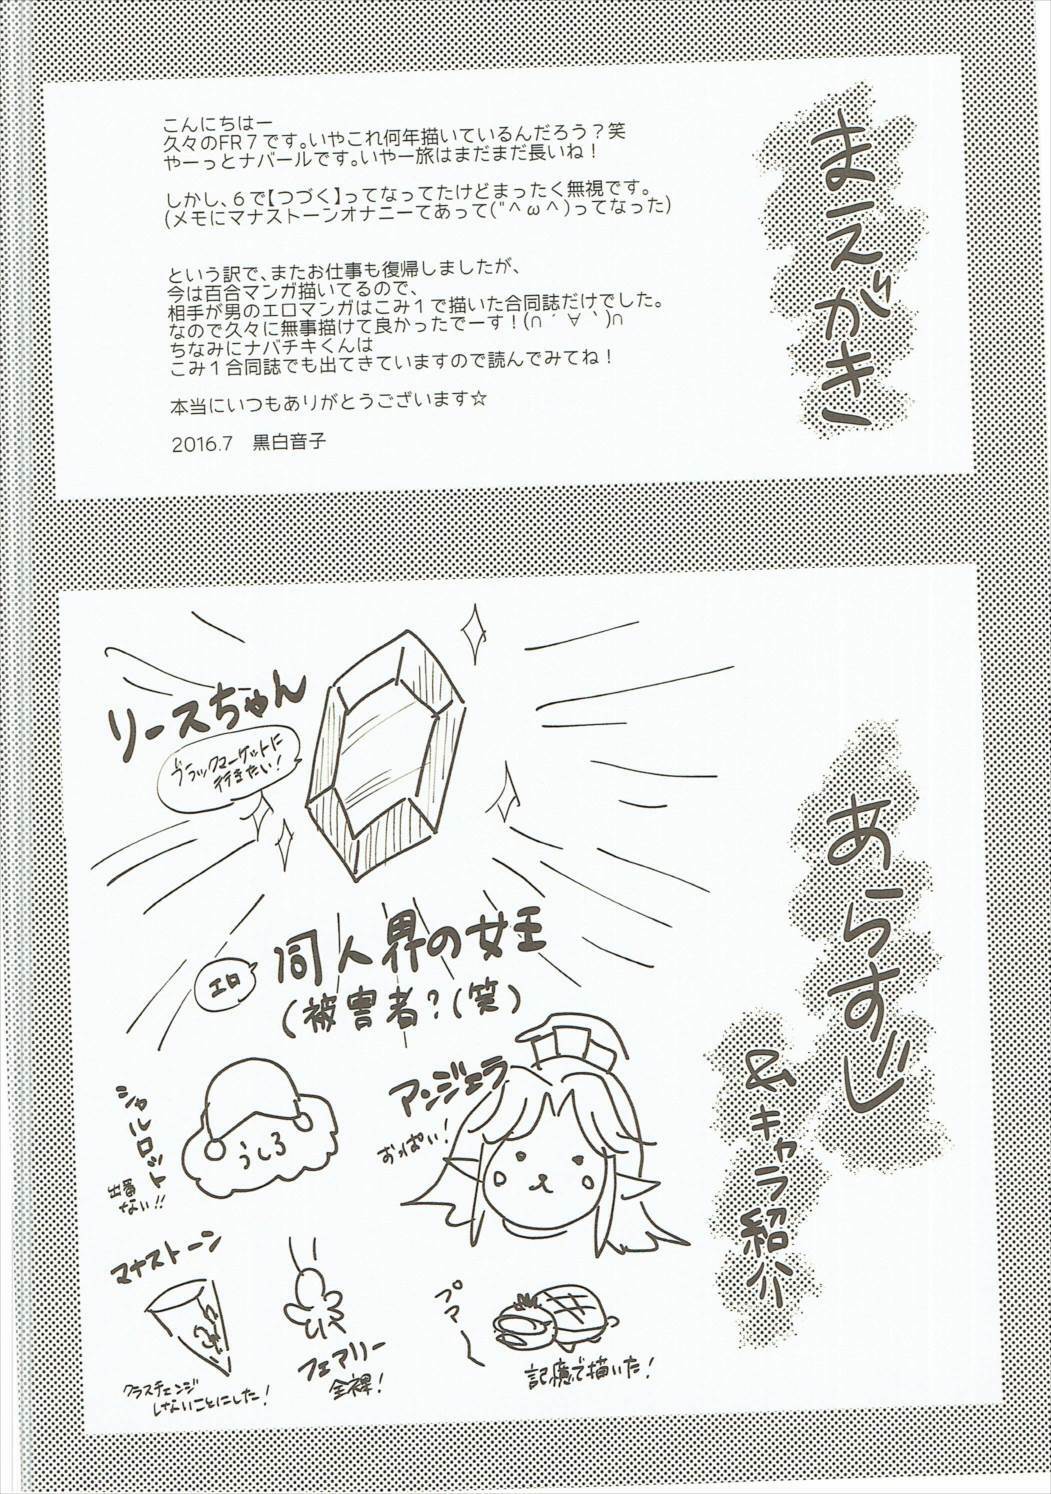 まえがき
こんにちはー
久々のFR7です。いやこれ何年描いているんだろう？笑
やーっとナバールです。いやー旅はまだまだ長いね！
しかし、6で【つづく】ってなってたけどまったく無視です。
(メモにマナストーンオナニーてあって("＾ω＾)ってなった)
という訳で、またお仕事も復帰しましたが、
今は百合マンガ描いてるので、
相手が男のエロマンガはこみ1で描いた合同誌だけでした。
なので久々に無事描けて良かったでーす！(∩´∀｀)∩
ちなみにナバチキくんは
こみ1合同誌でも出てきていますので読んでみてね！
本当にいつもありがとうございます☆
2016.7　黒白音子
あらすじ
&キャラ紹介
リースちゃん
ブラックマーケットに
行きたい！
エロ
同人界の女王
(被害者？(笑)
アンジェラ
おっぱい！
シャルロット
うしろ
出番
ない!!
マナストーン
クラスチェンジ
しないことにした！
フェアリー
全裸！
プマー
記憶で描いた！